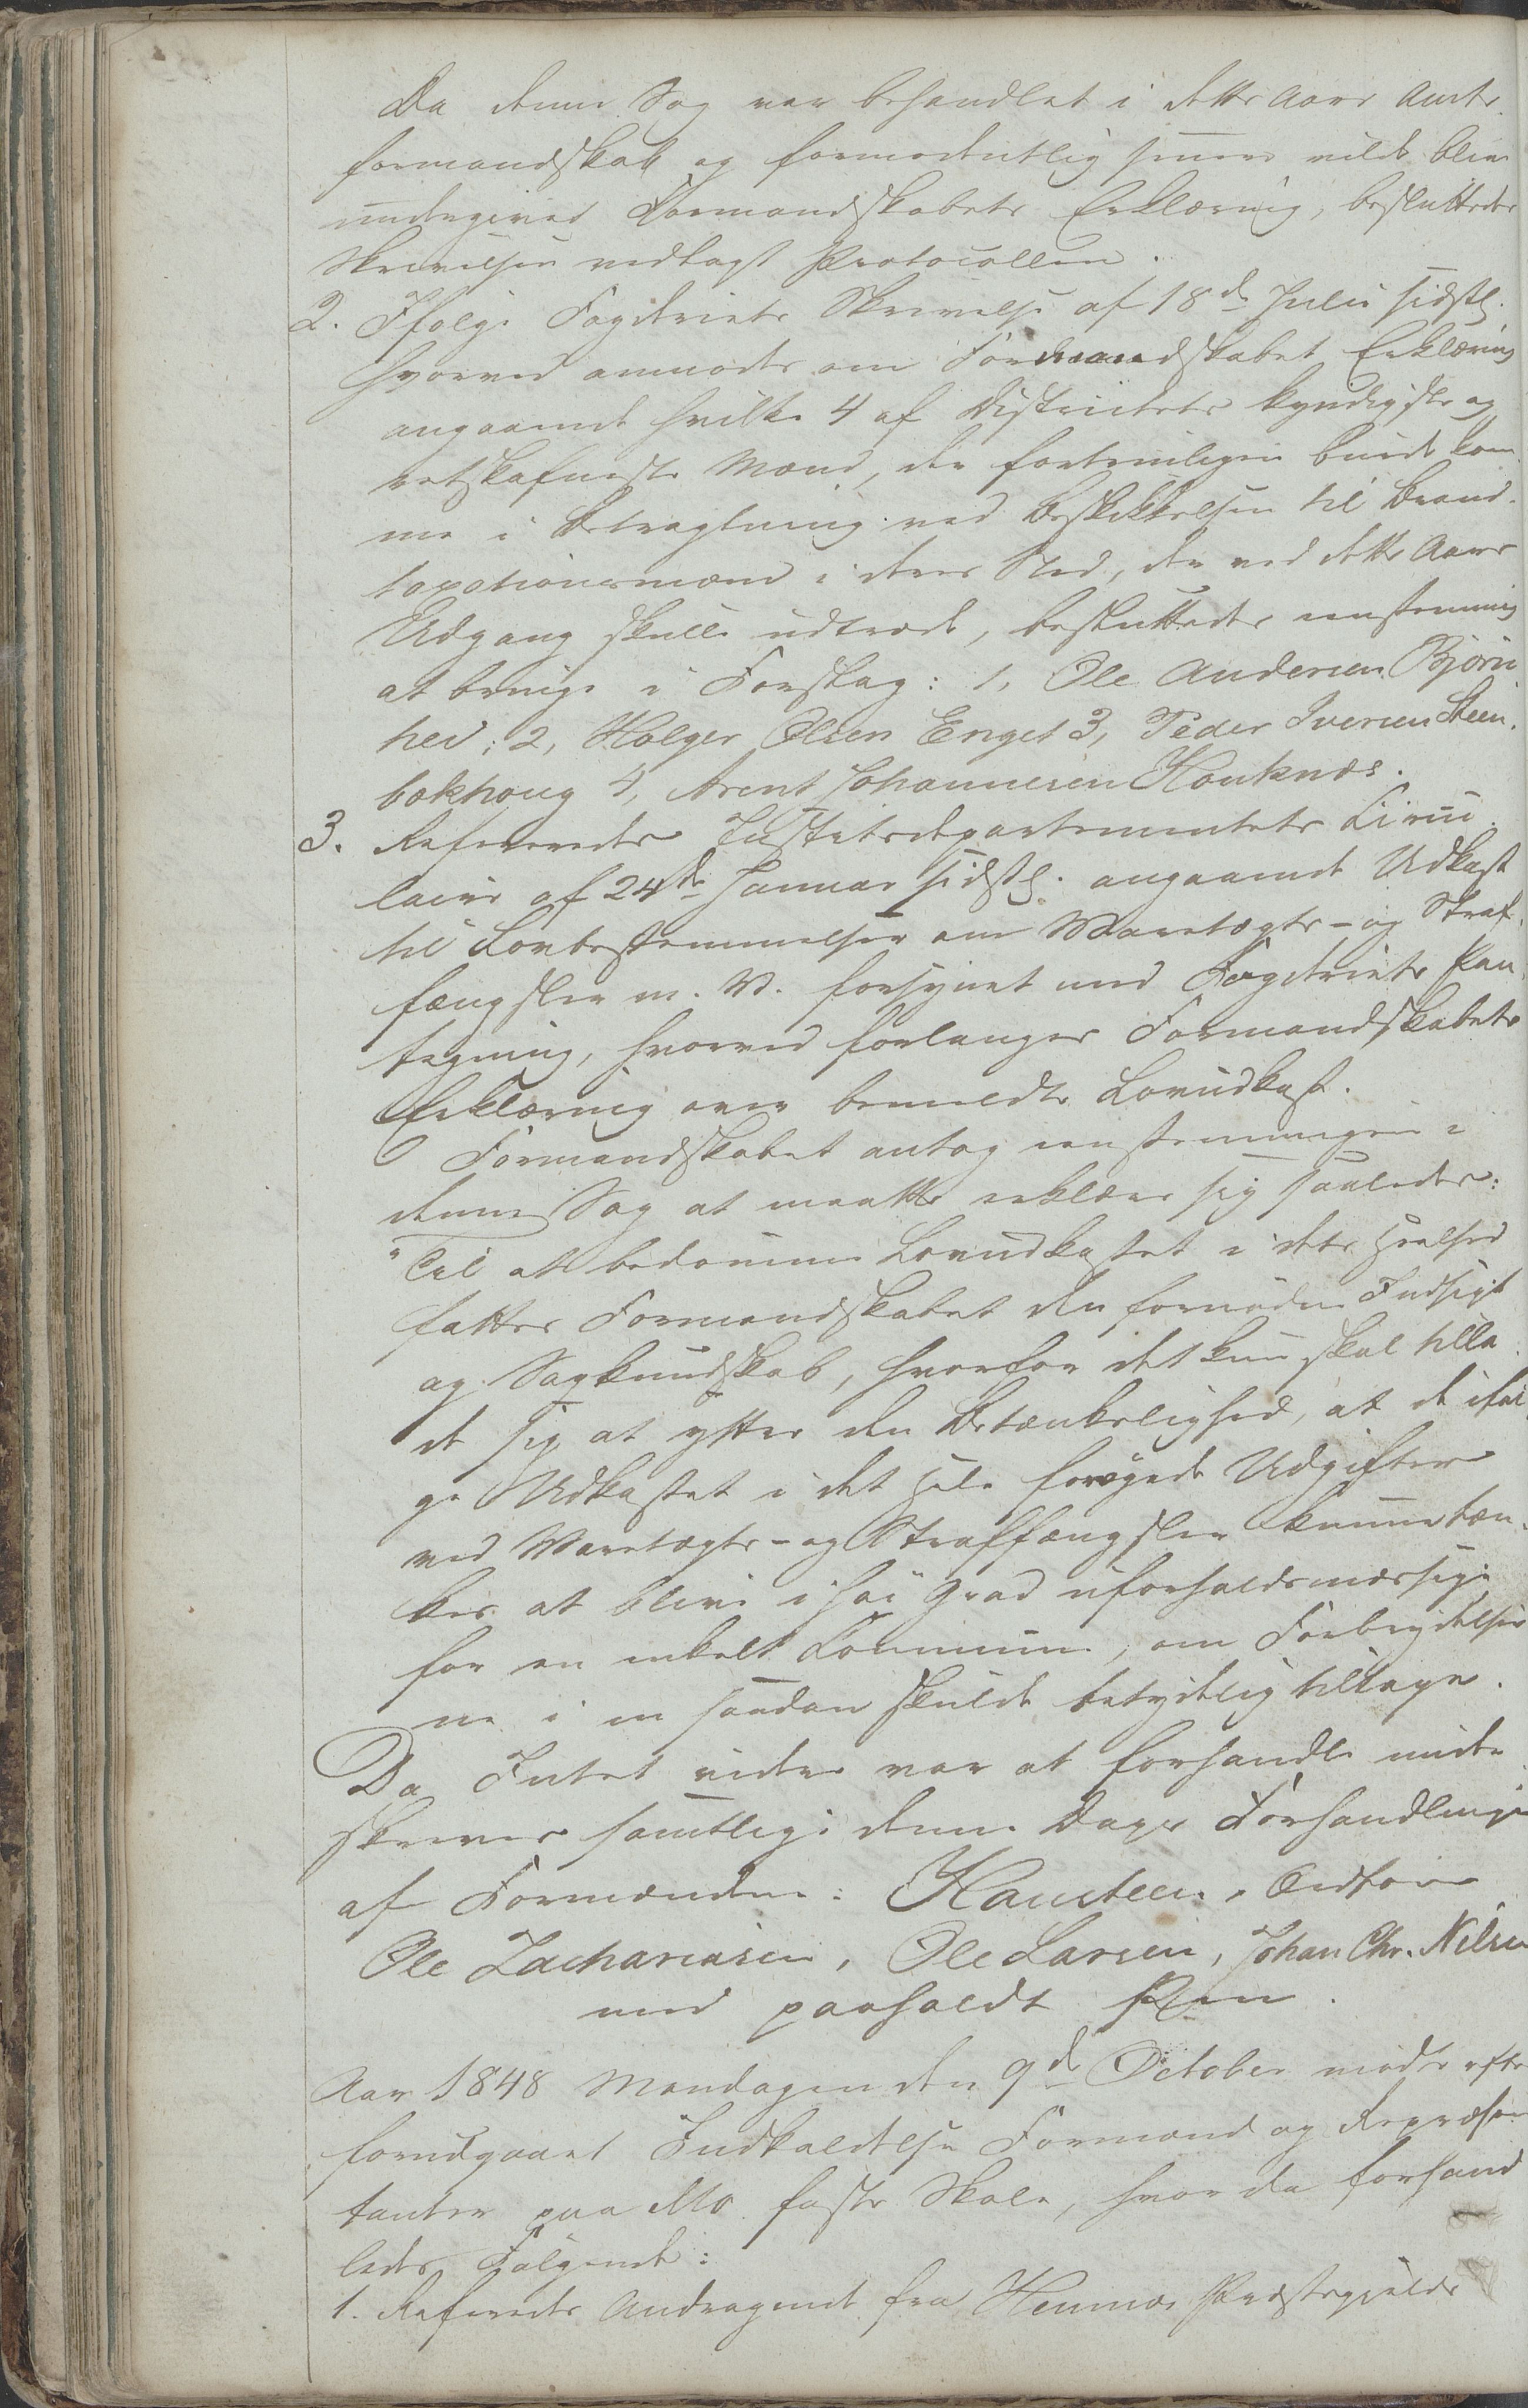 Da denne Sag var behandlet i dette Aars Amts
formandskab og formodentlig senere vilde blive
undergivet Formandskabets Erklæring, besluttedes
Skrivelsen vedlagt Protocollen.
2. Ifølge Fogderiets Skrivelse af 18de Julii sidstl.
hvorved anmodes om Formandskabet Erklæring
angaaende hvilke 4 af Districtets kyndigste og
retskafneste Mænd, der fortrinligen burde kom
me i Betragtning ved Beskikkelsen til Brand-
taxationsmænd i deres Sted, der ved dette Aars
Udgang skulle udtræde, besluttedes eenstemmig
at bringe i Forslag: 1, Ole Andersen Bjørn
hei; 2, Holger Olsen Enget 3, Peder Iversen Steen-
bækhoug 4, Arent Johannesen Houknæs.
3. Refereredes Justitsdepartementets Circu-
laire af 24de Januar sidstl. angaaende Udkast
til Lovbestemmelser om Varetægts- og Straf-
fængsler m. V. forsynet med Fogderiets Paa-
tegning, hvorved forlanges Formandskabets
Erklæring over bemeldte Lovudkast.
Formandskabet antog eenstemmigen i
denne Sag at maatte erklære sig saaledes:
"Til at bedømme Lovudkastet i dets Heelhed
fatter Formandskabet den fornødne Indsigt
og Sagkundskab, hvorfor det kun skal tilla-
de sig at yttre den Betænkelighed, at de iføl
ge Udkastet i det Hele forøgede Udgifter
ved Varetægts- og Straffængsler kunne tæn-
kes at blive i høi Grad uforholdsmæssige
for en enkelt Commune, om Forbrydelser
ne i en saadan skulde betydelig tiltage.
Da Intet videre var at forhandle under
skreves samtlige denne Dags Forhandlinger
af Formændene: Hansteen, Ordfører
Ole Zachariasen, Ole Larsen, Johan Chr. Nilsen
med paaholdt Pen.
Aar 1848 Mandagen den 9de October mødte efter
forudgaaet Indkaldelse Formænd og Repræsen
tanter paa Mo faste Skole, hvor da forhand
ledes Følgende:
1. Refereredes Andragende fra Hemnæs Præstegjelds